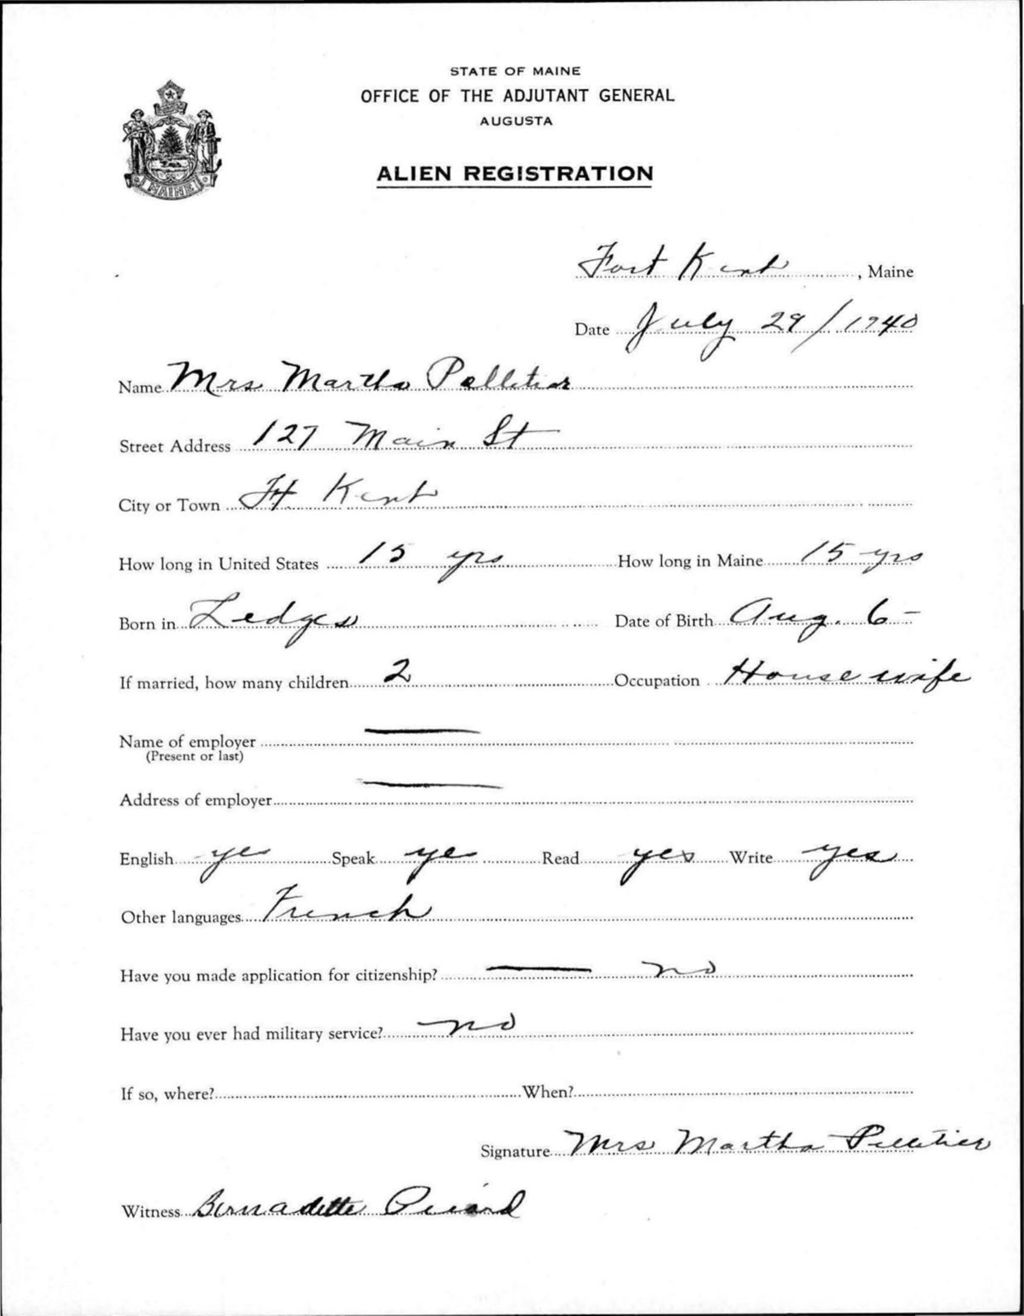 STATE OF MAINE
OFFICE OF THE ADJUTANT GENERAL
AUGUSTA
ALIEN REGISTRATION
MAINE
Fort Kent, Maine
Date July 29/1940
Name Mrs Martha Pelletier
Street Address 127 Main St
City or Town Ft Kent
How long in United States 15 yrs How long in Maine 15 yrs
Born in Ledges Date of Birth Aug. 6-
If married, how many children 2 Occupation Housewife
Name of employer
(Present or last)
Address of employer
English yes Speak yes Read yes Write yes
Other languages French
Have you made application for citizenship? — no
Have you ever had military service? no
If so, where? When?
Signature Mrs Martha Pelletier
Witness Bernadette